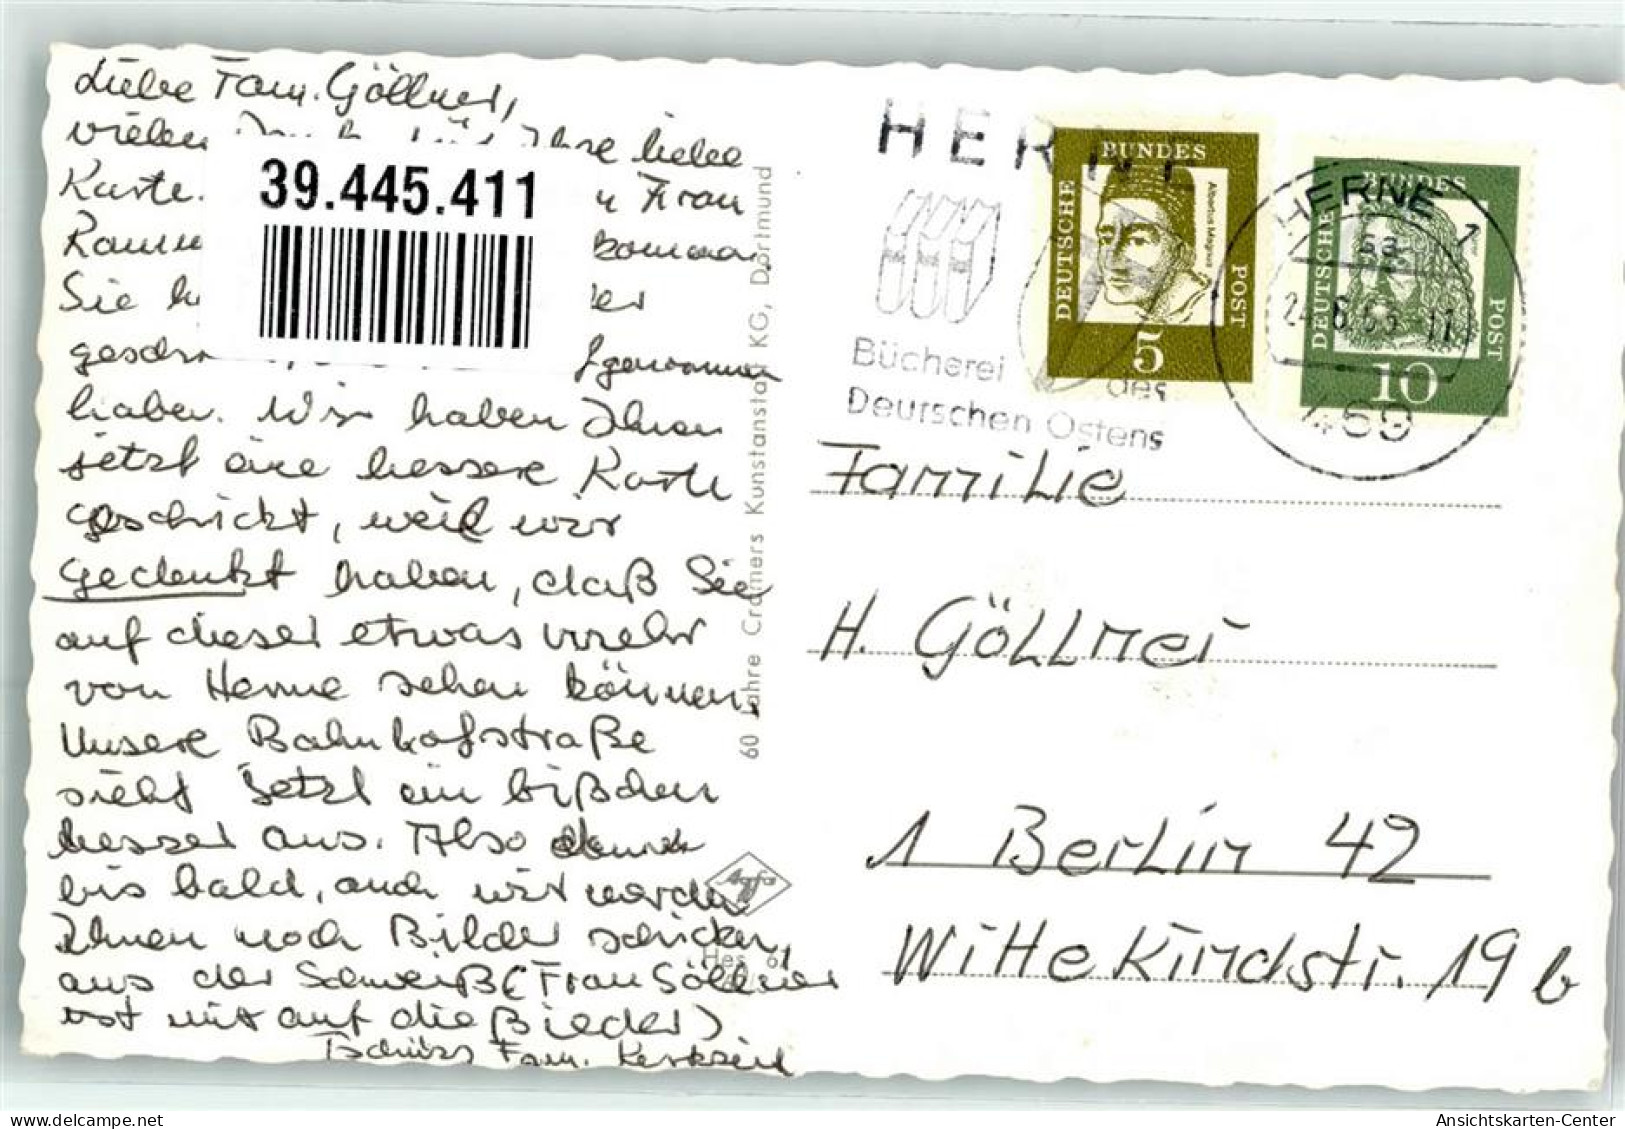 Liebe Fam. Göllner,
vielen Ihre liebe
Karte. Frau
39.445.411
Sie
haben. Wir haben Ihnen
jetzt eine bessere Karte
geschickt, weil wir
gedenkt haben, daß Sie
auf dieser etwas mehr
von Herne sehen können.
Unsere Bahnhofstraße
sieht jetzt ein bißchen
besser aus. Also
bis bald, auch wir werden
Ihnen noch Bilder schicken,
aus der Schweiß (Frau Göllner
ist mit auf die Bieder)
Tschüss Fam.
60 Jahre Cramers Kunstanstalt KG, Dortmund
Agfa
Hes 6
HERNE
Bücherei des
Deutschen Ostens
BUNDES
DEUTSCHE
POST
Albertus Magnus
5
BUNDES
DEUTSCHE
POST
10
HERNE 1
sa
24.6.65-11
469
Familie
H. Göllner
1 Berlin 42
Wittekindstr. 19 b
Ansichtskarten-Center
delcampe.net